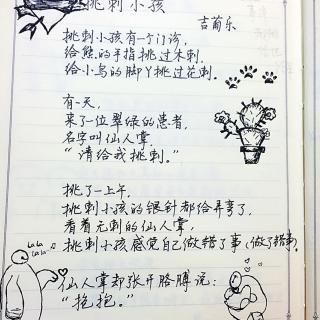 挑刺小孩
吉葡乐
挑刺小孩有一个门诊,
给熊的手指挑过木刺.
给小鸟的脚丫挑过花刺.
有一天,
来了一位翠绿的患者,
名字叫仙人掌,
“请给我挑刺.”
挑了一上午,
挑刺小孩的银针都给弄弯了,
看着无刺的仙人掌,
挑刺小孩感觉自己做错了事(做了错事).
仙人掌却张开胳膊说:
“抱抱.”
LaLa
LaLa
LaLa